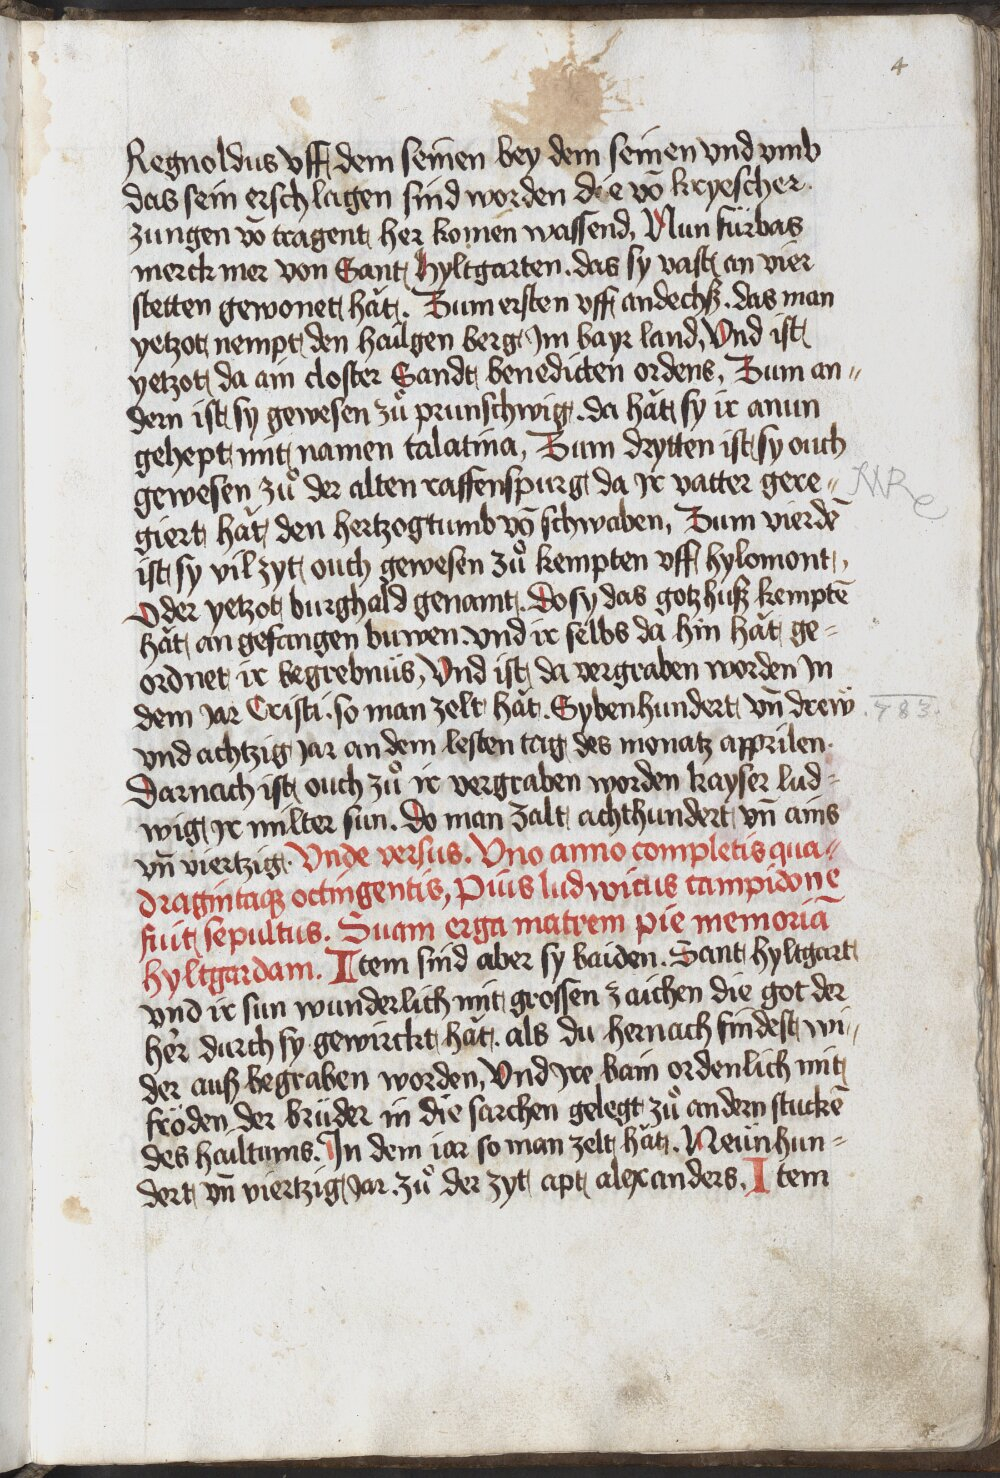 4
Regnoldus vff dem seinen bey dem seinen vnd vmb
das sein erschlagen sind worden die vō kryescher
zungen vō tragent her komen wassend, Nun fürbas
merck mer von Sant hyltgarten. das sy vast an vier
stetten gewonet hǎt. Zum ersten vff andechß. das man
yetzot nempt den hailgen berg Jm bayr land, Vnd ist
yetzot da ain closter Sandt benedicten ordens, Zum an„
dern ist sy gewesen zů prunschwig. da hǎt sy ir anun
gehept mit namen talatina, Zum drytten ist sy ouch
gewesen zů der alten raffenspurg da Jr vatter gere„
giert hǎt den hertzogtumb vō schwaben, Zum vierdē
ist sy vil zyt ouch gewesen zů kempten vff hylomont,
Oder yetzot burghald genamt. Do sy das gotzhuß kemptē
hǎt an gefangen buwen. vnd ir selbs da hin hǎt ge=
ordnet ir begrebnüs, Vnd ist da vergraben worden Jn
dem Jar Cristi. so man zelt hǎt. Sybenhundert vn̄ drew
.783.
vnd achtzig Jar an dem lesten tag des monatz apprilen.
Darnach ist ouch zů ir vergraben worden kayser lud=
wig Jr milter sun. Do man zalt achthundert vn̄ ains
vn̄ viertzig. Vnde versus. Vno anno completis qua„
dragintaqꝫ octingentis, Pius ludwicus campidone
fuit sepultus. Suam erga matrem pie memoriā
hyltgardam. Item sind aber sy baiden. Sant hyltgart
vnd ir sun wunderlich mit grossen zaichen die got der
her durch sy gewirckt hǎt. als du hernach findest wi„
der auß begraben worden, Vnd Jre bain ordenlich mit
fröden der brüder in die sarchen gelegt zů andern stuckē
des hailtums. Jn dem iar so man zelt hǎt. Neünhun=
dert vn̄ viertzig Jar. zů der zyt apt alexanders. Item